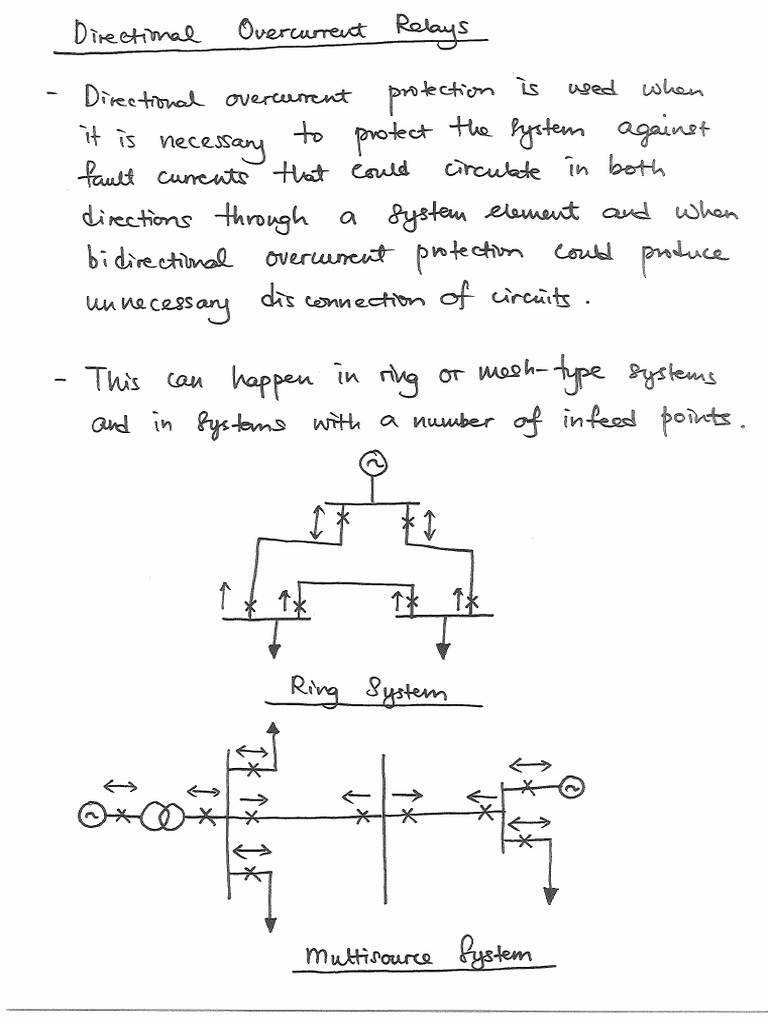 Directional Overcurrent Relays
- Directional overcurrent protection is used when
it is necessary to protect the system against
fault currents that could circulate in both
directions through a system element and when
bidirectional overcurrent protection could produce
unnecessary disconnection of circuits.
- This can happen in ring or mesh-type systems
and in systems with a number of infeed points.
Ring System
Multisource System